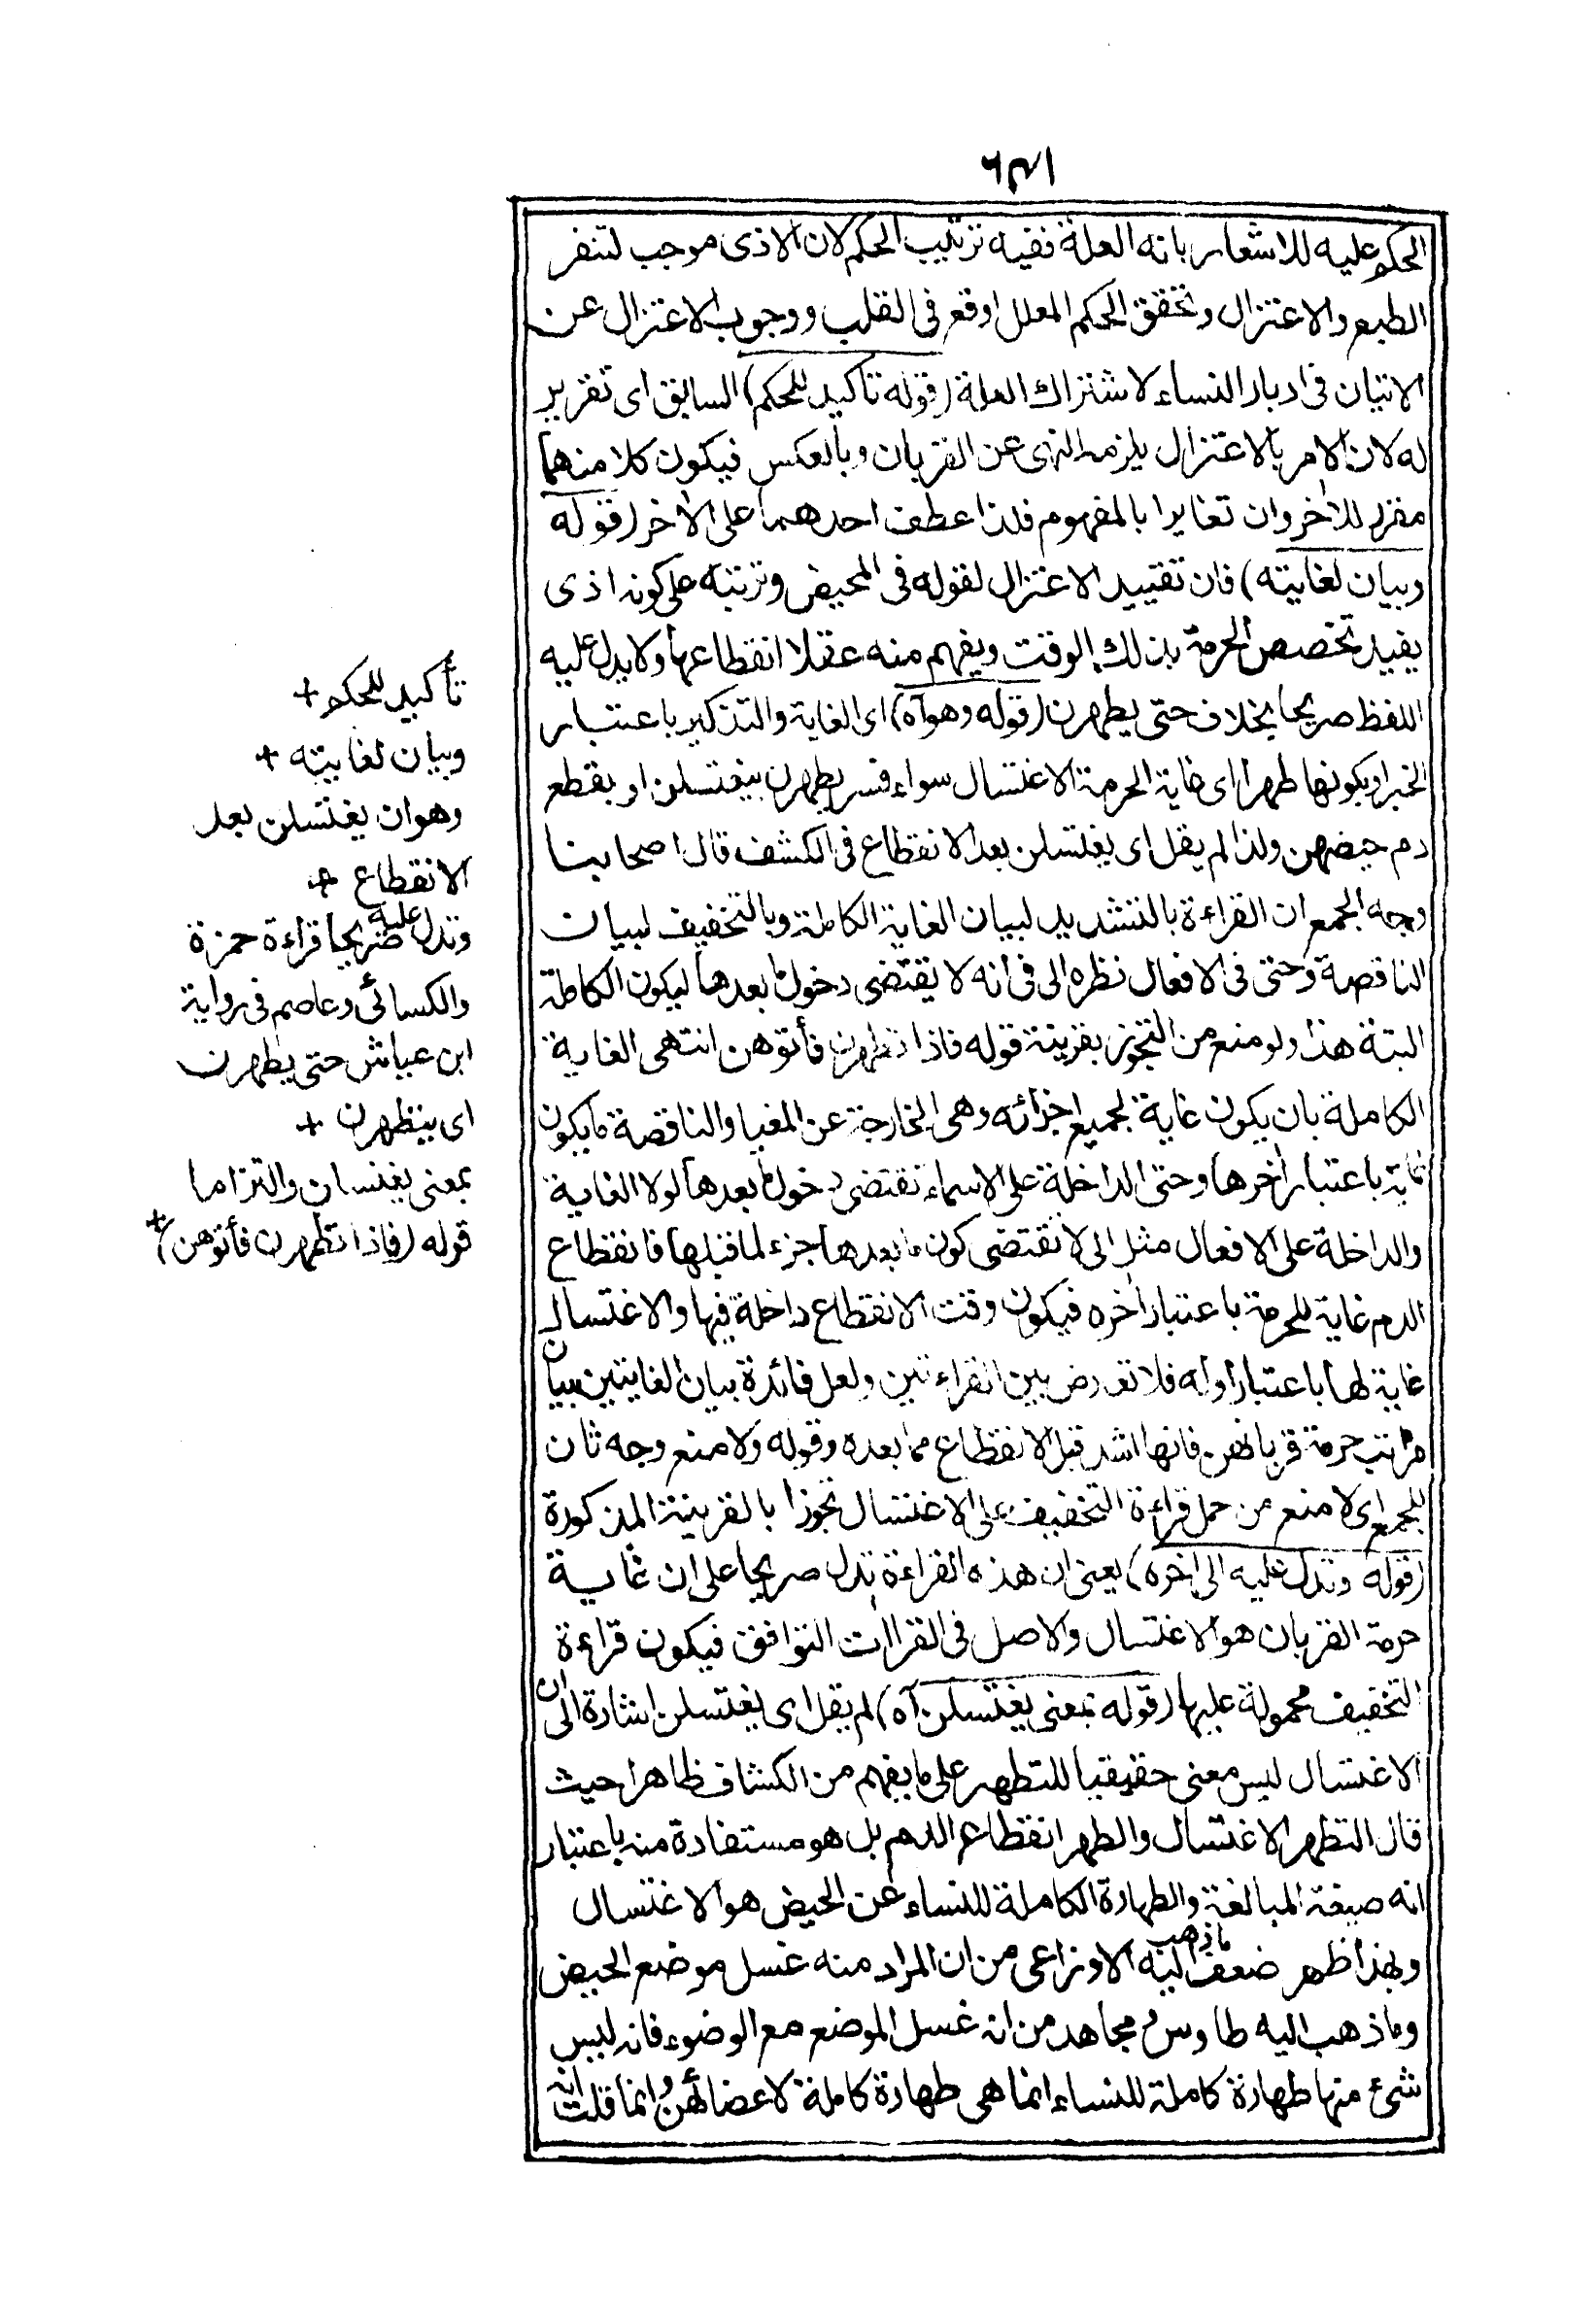 الحكم عليه للاشعار بانه العلة ففيه ترتيب الحكم لان الاذى موجب لتنفر
الطبع والاعتزال وتحقق الحكم المعلل اوقع فى القلب ووجوب الاعتزال عن
الاتيان فى ادبار النساء لاشتراك العلة (قوله تاكيد للحكم) السابق اى تقرير
له لان الامر بالاعتزال يلزمه النهى عن القربان وبالعكس فيكون كلا منهما
مقرر للاخر وان تغايرا بالمفهوم فلذا عطف احدهما على الاخر (قوله
وبيان لغايته) فان تقييد الاعتزال لقوله فى المحيض وترتبه على كونه اذى
يفيد تخصص الحرمة بذلك الوقت ويفهم منه عقلا انقطاعها ولا يدل عليه
اللفظ صريحا بخلاف حتى يطهرن (قوله وهو آه) اى الغاية والتذكير باعتبار
الخبر او بكونها طهرا اى غاية الحرمة الاغتسال سواء فسر يطهرن بيغتسلن او بقطع
دم حيضهن ولذا لم يقل اى يغتسلن بعد الانقطاع فى الكشف قال اصحابنا
وجه الجمع ان القراءة بالتشديد لبيان الغاية الكاملة وبالتخفيف لبيان
الناقصة وحتى فى الافعال نظره الى فى انه لا يقتضى دخول ما بعدها ليكون الكاملة
البتة هذا ولو منع من التجوز بقرينة قوله فاذا تطهرن فأتوهن انتهى الغاية
الكاملة بان يكون غاية لجميع اجزائه وهى الخارجة عن المغيا والناقصة ما يكون
غاية باعتبار اخرها وحتى الداخلة على الاسماء تقتضى دخول ما بعدها لولا الغاية
والداخلة على الافعال مثل الى لا تقتضى كون ما بعدها جزء لما قبلها فانقطاع
الدم غاية للحرمة باعتبار اخره فيكون وقت الانقطاع داخلة فيها والاغتسال
غاية لها باعتبار اوله فلا تعارض بين القراءتين ولعل فائدة بيان الغايتين بيان
مراتب حرمة قربانهن فانها اشد قبل الانقطاع مما بعده وقوله ولا منع وجه ثان
للجمع اى لا منع من حمل قراءة التخفيف على الاغتسال تجوزا بالقرينة المذكورة
(قوله وتدل عليه الى اخره) يعنى ان هذه القراءة تدل صريحا على ان غاية
حرمة القربان هو الاغتسال والاصل فى القراات التوافق فيكون قراءة
التخفيف محمولة عليها (قوله بمعنى يغتسلن آه) لم يقل اى يغتسلن اشارة الى ان
الاغتسال ليس معنى حقيقيا للتطهر على ما يفهم من الكشاف ظاهرا حيث
قال التطهر الاغتسال والطهر انقطاع الدم بل هو مستفادة منه باعتبار
انه صيغة المبالغة والطهارة الكاملة للنساء عن الحيض هو الاغتسال
وبهذا ظهر ضعف ما ذهب اليه الاوزاعى من ان المراد منه غسل موضع الحيض
وما ذهب اليه طاوس و مجاهد من انه غسل الموضع مع الوضوء فانه ليس
شئ منها طهارة كاملة للنساء انما هى طهارة كاملة لاعضائهن وانما قلت انه
تأكيد للحكم +
وبيان لغايته +
وهو ان يغتسلن بعد
الانقطاع +
وتدل عليه صريحا قراءة حمزة
والكسائى وعاصم فى رواية
ابن عياش حتى يطهرن
اى يتطهرن +
بمعنى يغتسلن والتزاما
قوله (فاذا تطهرن فأتوهن) +